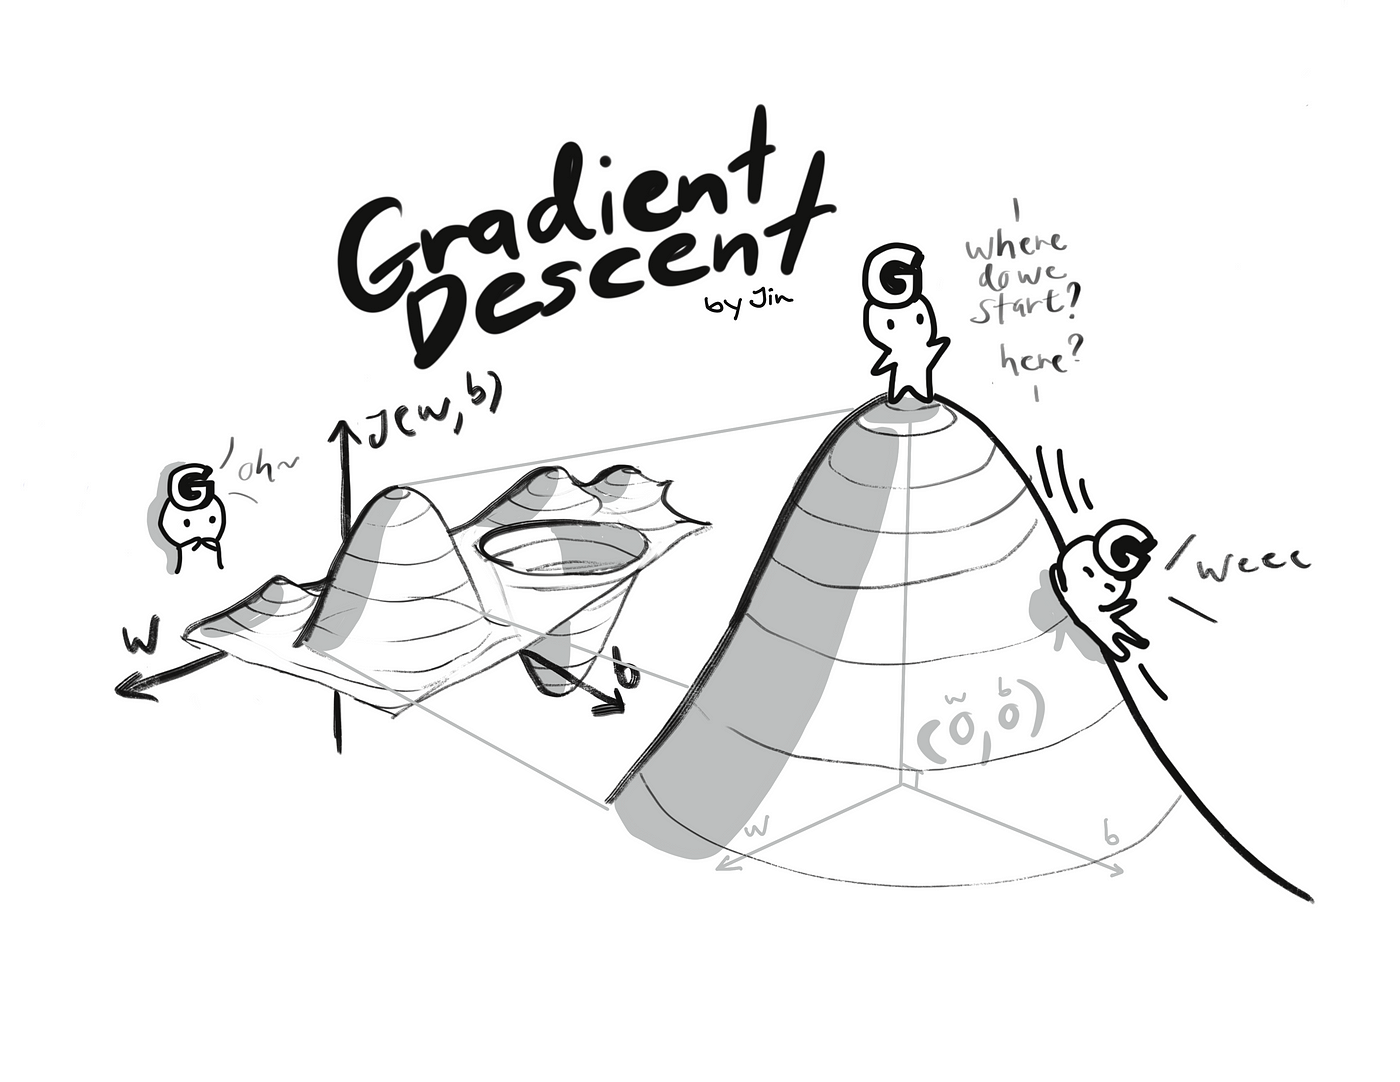 Gradient
Descent
by Jin
where
do we
start?
here?
G
J(w,b)
G
oh~
G
weee
w
b
w b
(0,0)
w
b